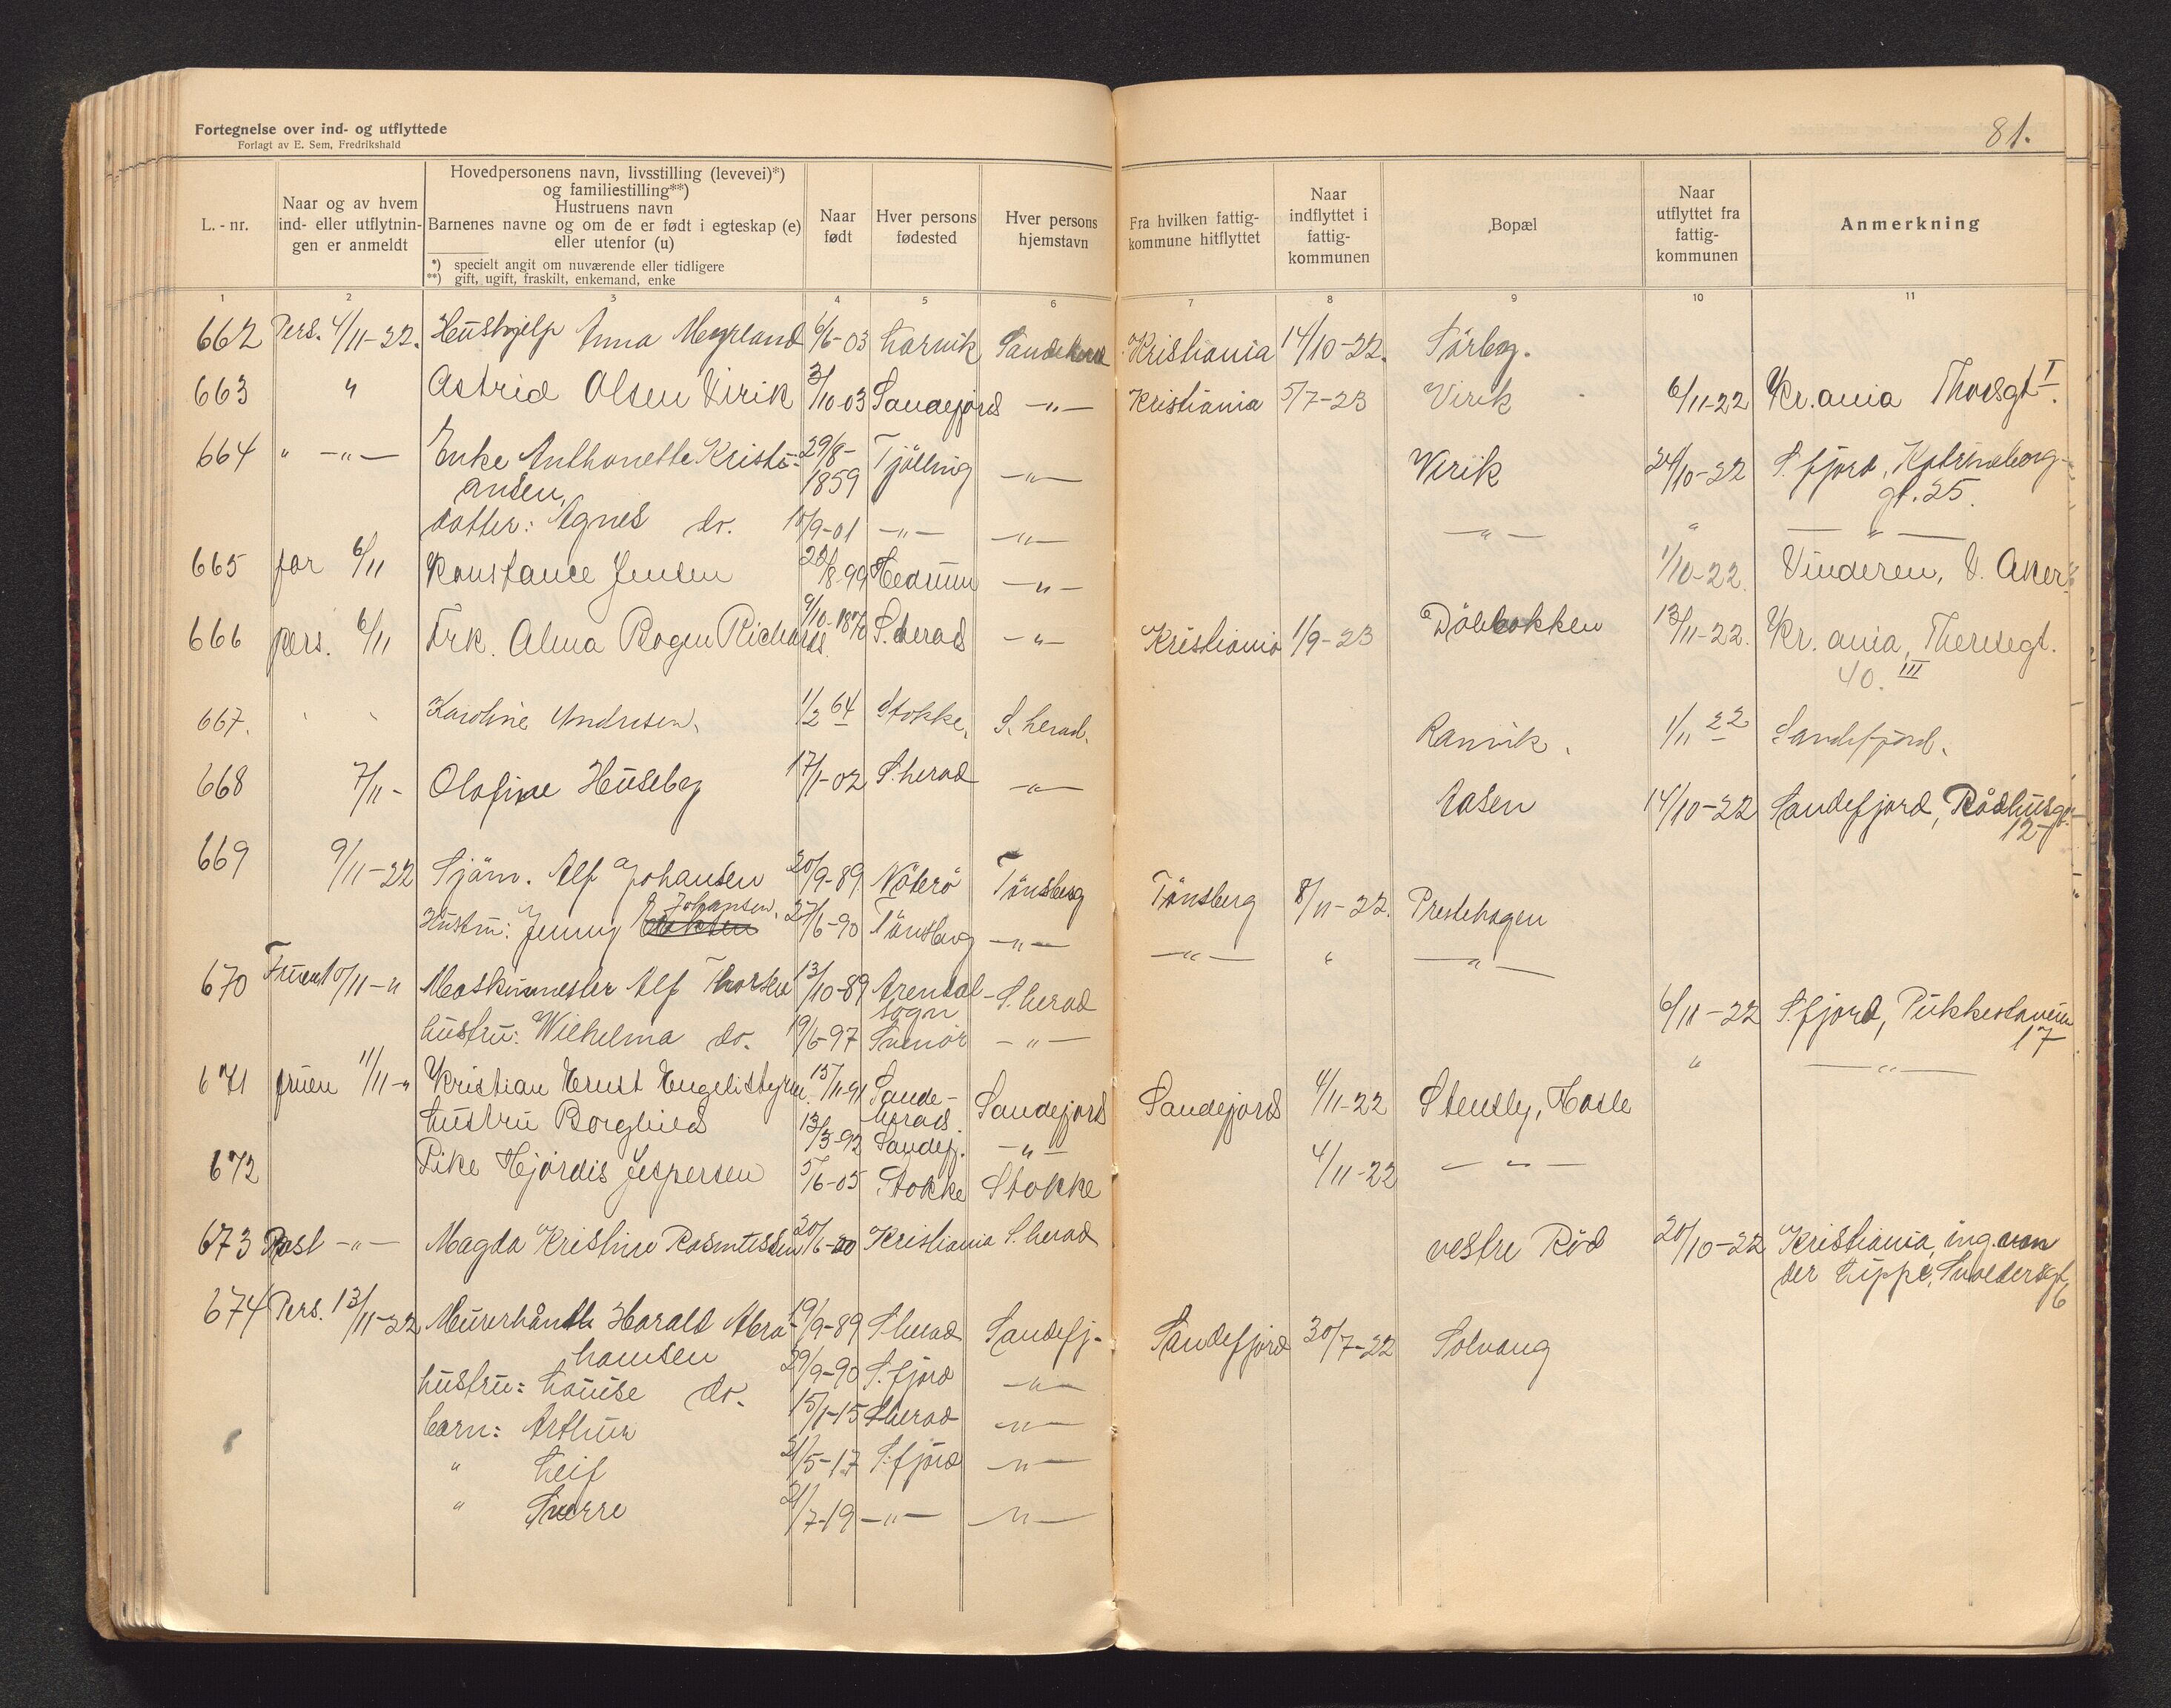 Fortegnelse over ind- og utflyttede
Forlagt av E. Sem, Fredrikshald
81.
L. - nr.
Naar og av hvem ind- eller utflytnin- gen er anmeldt
Hovedpersonens navn, livsstilling (levevei)*)
og familiestilling**)
Hustruens navn
Barnenes navne og om de er født i egteskap (e)
eller utenfor (u)
*) specielt angit om nuværende eller tidligere
**) gift, ugift, fraskilt, enkemand, enke
Naar født
Hver persons fødested
Hver persons hjemstavn
Fra hvilken fattig- kommune hitflyttet
Naar indflyttet i fattig- kommunen
Bopæl
Naar utflyttet fra fattig- kommunen
Anmerkning
1 2 3 4 5 6 7 8 9 10 11
662 Pers. 4/11-22. Hushjelp Anna 6/6-03 Larvik Sandeherad Kristiania 14/10-22.
663 " Astrid Olsen Virik 3/10-03 Sandefjord -"- Kristiania 5/7-23 Virik 6/11-22 Kr.ania Thorsgt I.
664 " -"- Enke Anthonette Kristi- 29/8- Tjölling -"- Virik 24/10-22 S.fjord, Katrineborg-
ansen, 1859 gt. 25.
datter: Agnes do. 10/9-01 -"- -"- -"- " -"-
665 far 6/11 Konstance Jensen 28/8-99 Hedrum -"- 1/10-22. Vinderen, V. Aker
666 pers. 6/11 Frk. Alma Bogen Richards. 9/10-1870 S.herad -"- Kristiania 1/9-23 Dölebakken 13/11-22. Kr.ania, Theresegt.
40. III
667. Karoline Andresen. 1/2 64 Stokke. S.herad. Ranvik. 1/11 22 Sandefjord.
668 7/11- Olafine Huseby 17/1-02 S.herad -"- Aasen 14/10-22 Sandefjord, Rådhusgt.
12
669 9/11-22 Sjöm. Alf Johansen 20/9-89 Nöterö Tönsberg Tönsberg 8/11-22. Prestehagen
Johansen.
Hustru: Jenny 27/6-90 Tönsberg -"- -"- " -"-
670 Fruen 10/11-" Maskinmester Alf 13/10-89 Arendal S.herad 6/11-22 S.fjord,
sogn 17
hustru: Wilhelma do. 19/6-97 -"- " -"-
671 fruen 11/11-" Kristian Ernst 15/11-91 Sande- Sandefjord Sandefjord 4/11-22 Stensby, Hasle
herad
hustru Borghild 13/3-92 Sandef. -"-
672 Pike Hjördis Jespersen 5/6-05 Stokke Stokke 4/11-22 -"-
673 Post -"- Magda Kristine Rasmussen 20/6-00 Kristiania S.herad vestre Röd 20/10-22 Kristiania, ing. van
der Lippe, Svoldersgt
6
674 Pers. 13/11-22 Murerhåndl. Harald Abra- 19/9-89 S.herad Sandefj. Sandefjord 30/7-22 Solvang
hamsen
hustru: Louise do. 29/9-90 S.fjord -"-
barn: Arthur 15/1-15 S.herad -"-
" Leif 21/5-17 S.fjord -"-
" Sverre 21/7-19 -"- -"-